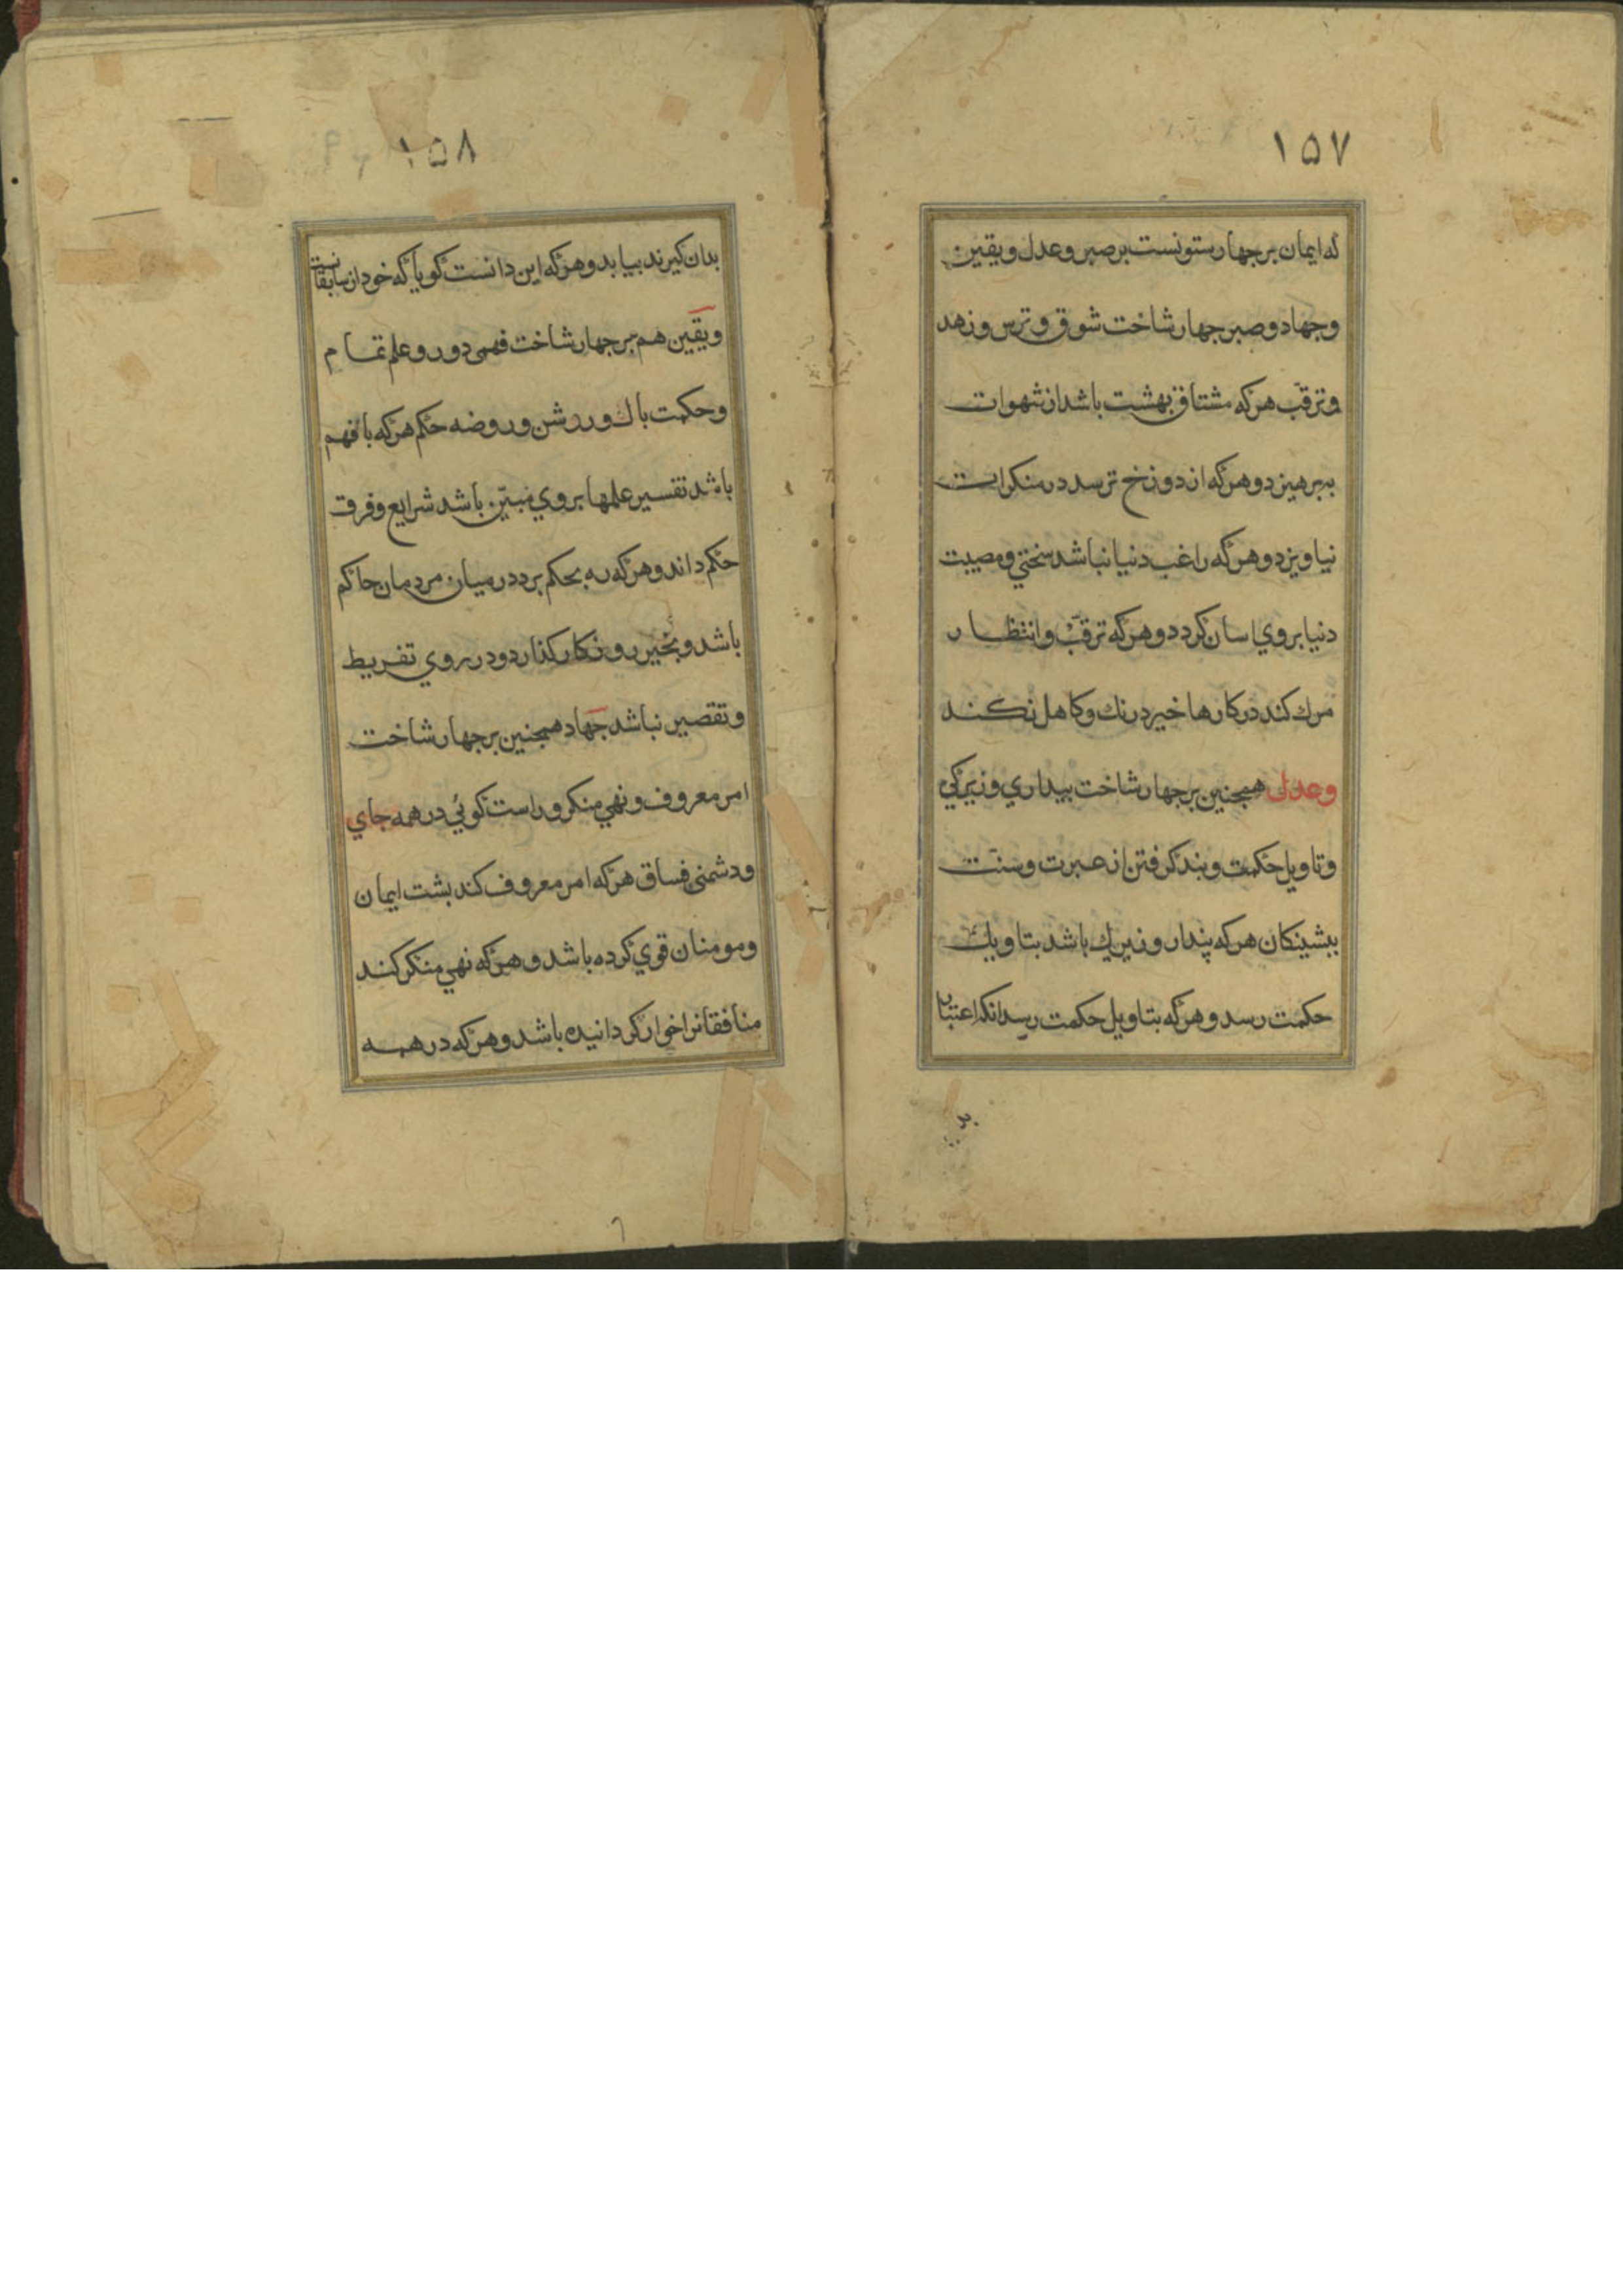 ۱۵۷
که ایمان بر جهار ستونست بر صبر و عدل و یقین
و جهاد و صبر بر جهار شاخت شوق و ترس و زهد
و ترقّب هرکه مشتاق بهشت باشد از شهوات
ببرهیزد و هرکه از دوزخ ترسد در منکرات
نیاویزد و هرکه راغب دنیا نباشد سختي و مصیبت
دنیا بروي اسان کردد و هرکه ترقّب و انتظار
مرك کند در کارها خیر درنك و کاهل نکند
وعدل همجنین بر جهار شاخت بیداري و زیرکي
و تاویل حکمت و بند کرفتن از عبرت و سنّت
بیشینکان هرکه پندار و زیرك باشد بتاویل
حکمت رسد و هرکه بتاویل حکمت رسد انکه اعتبار
۱۵۸
بدان کیرند بیابد و هرکه این دانست کویا که خود از سابقانست
و یقین هم بر جهار شاخت فهمی دور و علم تمام
و حکمت باك و روشن و روضه حکم هرکه بافهم
باشد تفسیر علمها بروي مبیّن باشد شرایع و فرق
حکم داند و هرکه ره بحکم برد در میان مردمان حاکم
باشد و بخیر روزکار کذارد و در روي تفریط
و تقصیر نباشد جهاد همجنین بر جهار شاخت
امر معروف و نهي منکر و راست کوئي در همه جاي
و دشمنی فساق هرکه امر معروف کند بشت ایمان
و مومنان قوي کرده باشد و هرکه نهي منکر کند
منافقانرا خوار کردانیده باشد و هرکه در همه